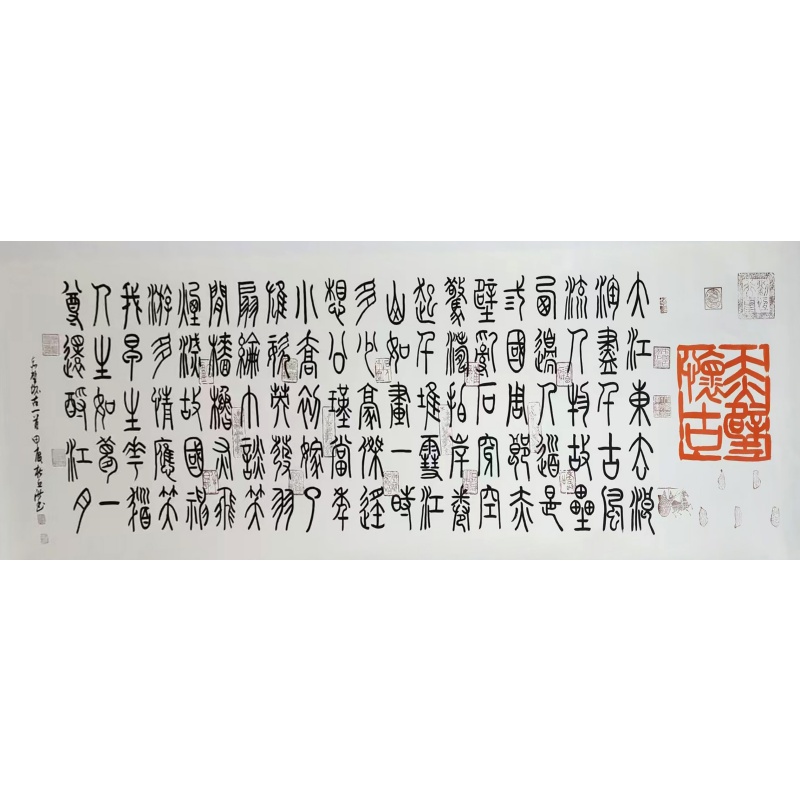 赤壁懷古
大江東去浪
淘盡千古風
流人物故壘
西邊人道是
弎國周郎赤
壁亂石穿空
驚濤拍岸卷
起千堆雪江
山如畫一時
多少豪傑遙
想公瑾當年
小喬初嫁了
雄姿英發羽
扇綸巾談笑
間檣櫓灰飛
煙滅故國神
游多情應笑
我早生華髮
人生如夢一
尊還酹江月
赤壁懷古一首